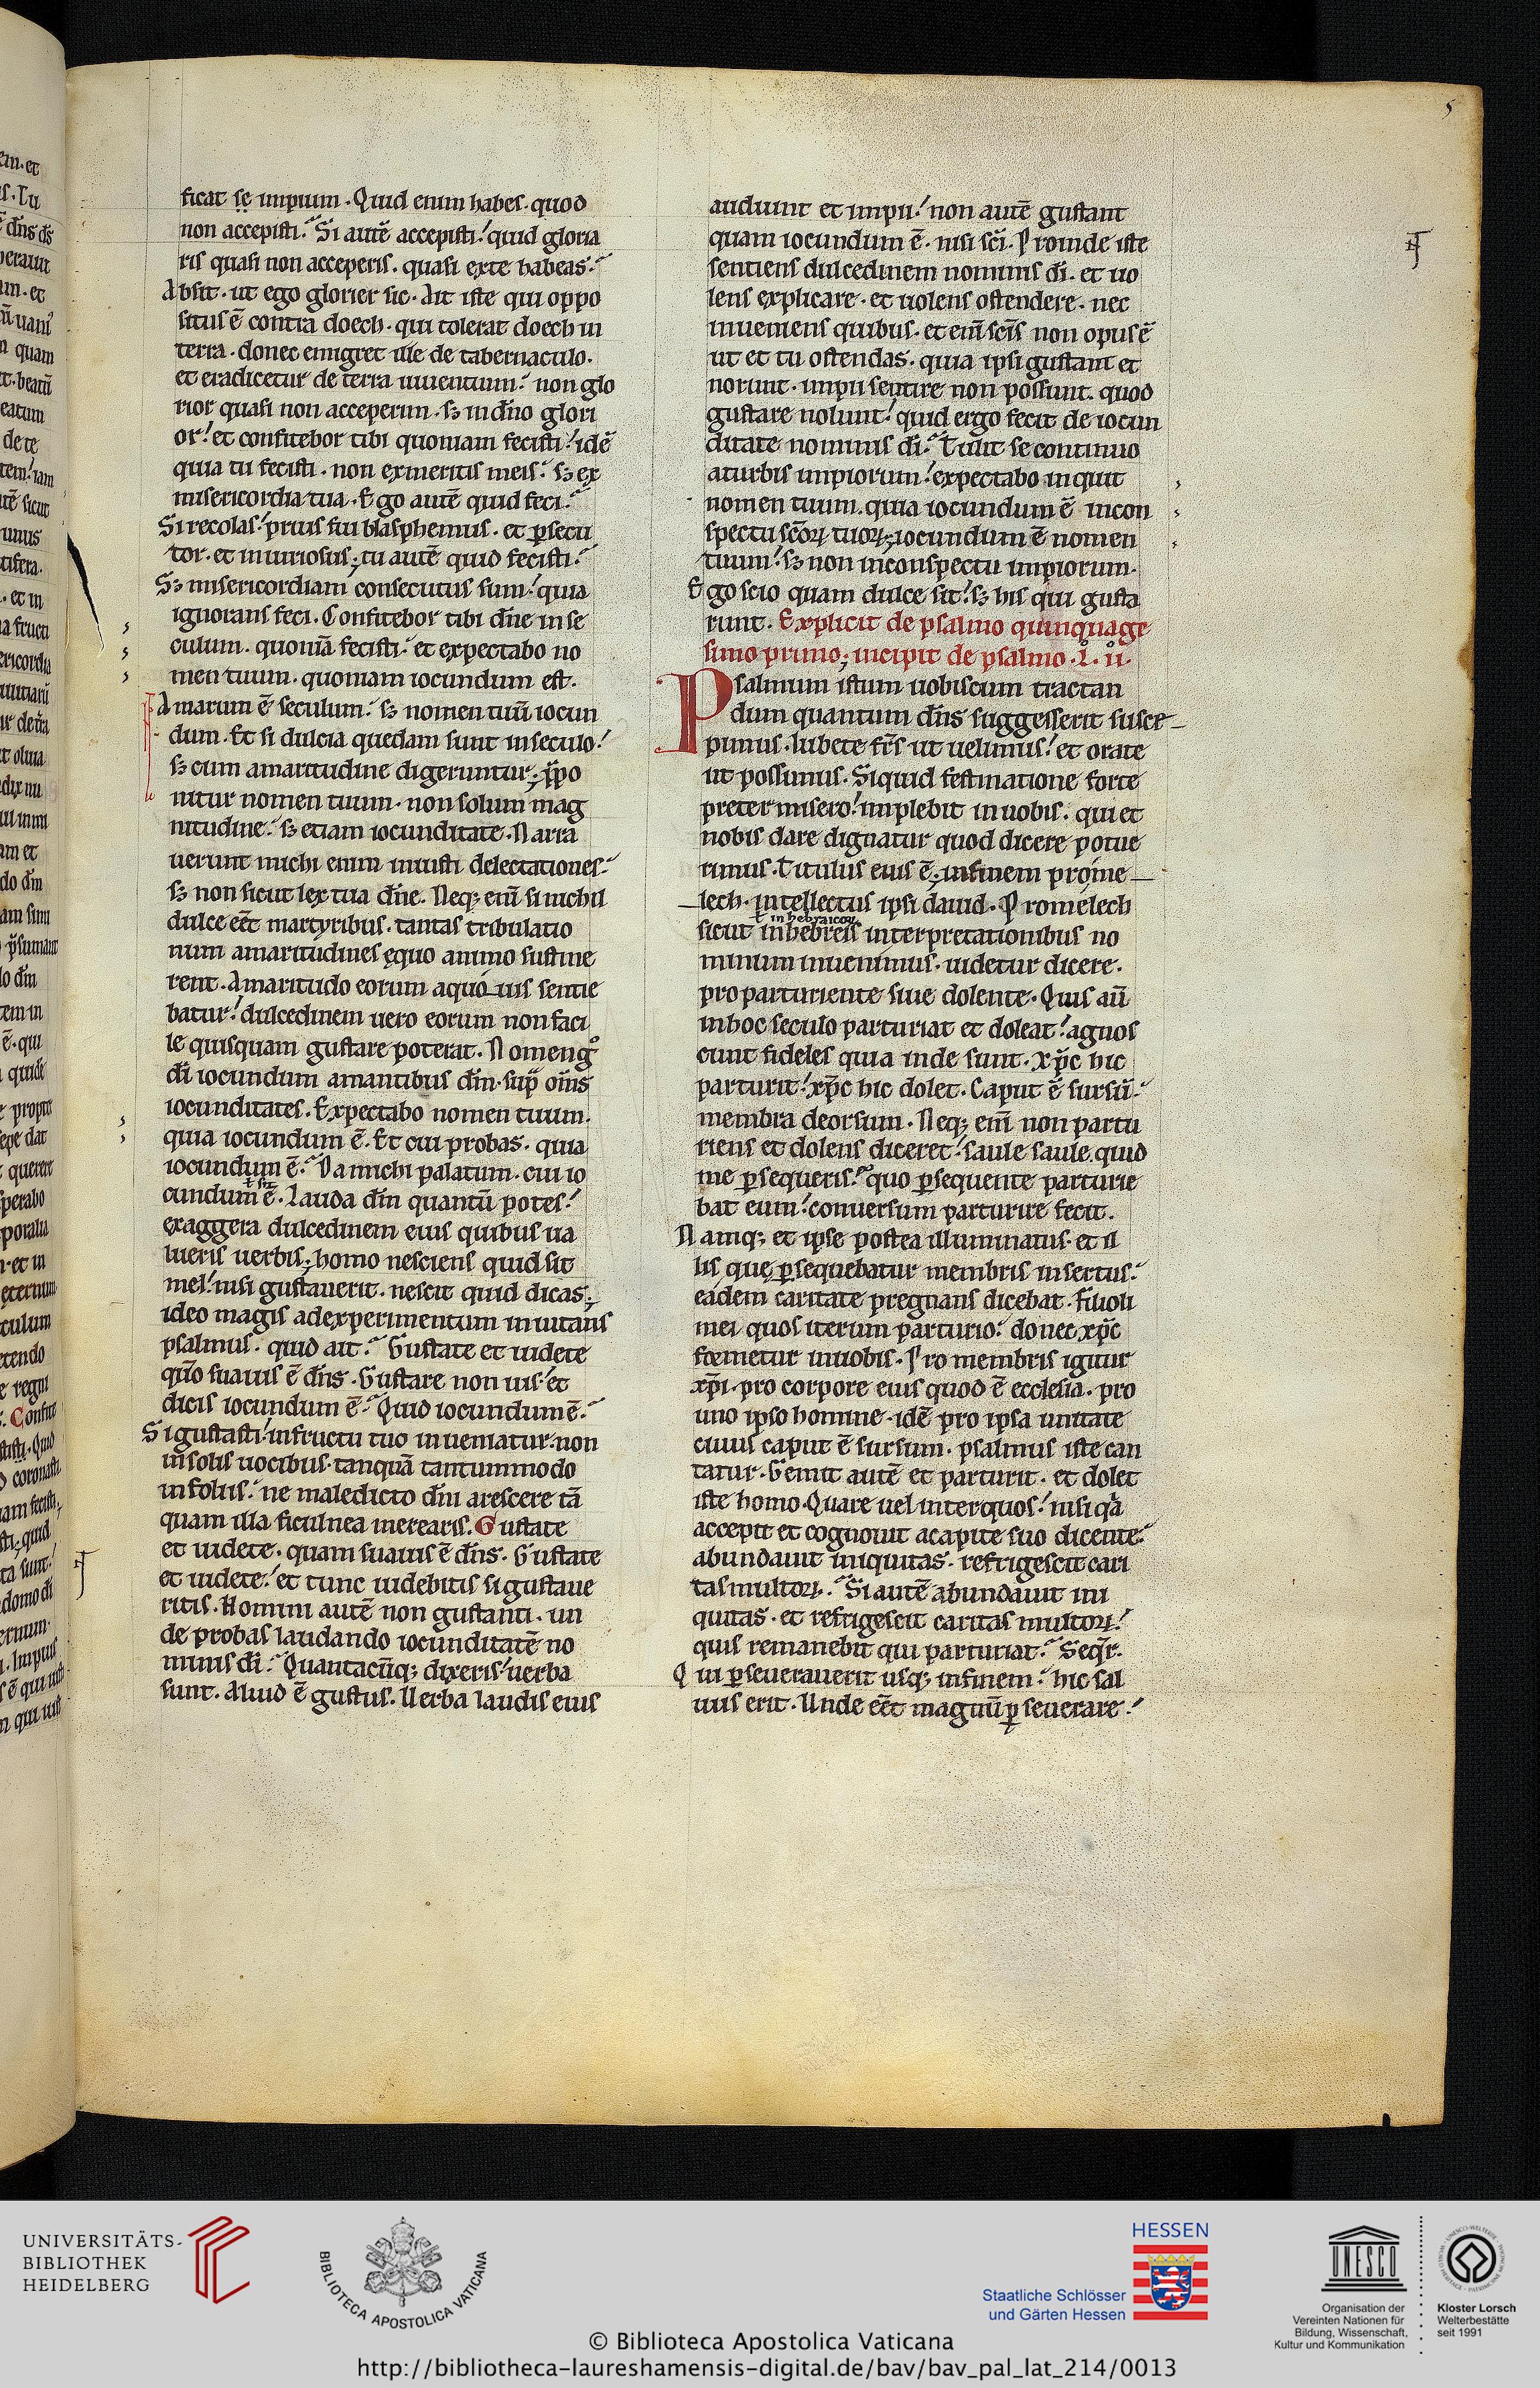 5
ficat se impium. Quid enim habes. quod
non accepisti? Si autē accepisti! quid gloria
ris quasi non acceperis. quasi exte habeas?
Absit. ut ego glorier sic. Ait iste qui oppo
situs ē contra doech. qui tolerat doech in
terra. donec emigret ille de tabernaculo.
et eradicetur de terra uiuentium. non glo
rior quasi non acceperim. sꝫ in dn̄o glori
or! et confitebor tibi quoniam fecisti! idē
quia tu fecisti. non exmeritis meis. sꝫ ex
misericordia tua. Ego autē quid feci?
Si recolas! prius fui blasphemus. et ꝑsecu
tor. et iniuriosus; tu autē quid fecisti?
Sꝫ misericordiam consecutus sum! quia
ignorans feci. Confitebor tibi dn̄e in se
culum. quoniā fecisti. et expectabo no
men tuum. quoniam iocundum est.
Amarum ē seculum. sꝫ nomen tuū iocun
dum. Et si dulcia quedam sunt inseculo!
sꝫ cum amaritudine digeruntur; p̄po
nitur nomen tuum. non solum mag
nitudine. sꝫ etiam iocunditate. Narra
uerunt michi enim iniusti delectationes.
sꝫ non sicut lex tua dn̄e. Neqꝫ eni͞ si nichil
dulce eēt martyribus. tantas tribulatio
num amaritudines ęquo animo sustine
rent. Amaritudo eorum aquo uis sentie
batur! dulcedinem uero eorum non faci
le quisquam gustare poterat. Nomen gͦ
dī iocundum amantibus dm̄. sup̄ om̄s
iocunditates. Expectabo nomen tuum.
quia iocundum ē. Et cui probas. quia
iocundum ē? Da michi palatum. cui io
cundum ē. Lauda dm̄ quantū potes!
exaggera dulcedinem eius quibus ua
lueris uerbis; homo nesciens quid sit
mel! nisi gustauerit. nescit quid dicas;
ideo magis adexperimentum inuitans
psalmus. quid ait? Gustate et uidete
qm̄o suauis ē dn̄s. Gustare non uis! et
dicis iocundum ē? Quid iocundum ē?
Si gustasti! infructu tuo inueniatur. non
insolis uocibus. tanquā tantummodo
infoliis. ne maledicto dn̄i arescere tā
quam illa ficulnea merearis. Gustate
et uidete. quam suauis ē dn̄s. Gustate
et uidete! et tunc uidebitis si gustaue
ritis. Homini autē non gustanti. un
de probas laudando iocunditatē no
minis dī? Quantacūqꝫ dixeris! uerba
sunt. Aliud ē gustus. Uerba laudis eius
audiunt et impii! non autē gustant
quam iocundum ē. nisi sc̄i. Proinde iste
sentiens dulcedinem nominis dī. et uo
lens explicare. et uolens ostendere. nec
inueniens quibus. et eni͞ sc̄is non opus ē
ut et tu ostendas. quia ipsi gustant et
norunt. impii sentire non possunt. quod
gustare nolunt! quid ergo fecit de iocun
ditate nominis dī? Tulit se continuo
aturbis impiorum! expectabo inquit
nomen tuum. quia iocundum ē incon
spectu sc̄oꝝ tuoꝝ; iocundum ē nomen
tuum! sꝫ non inconspectu impiorum.
Ego scio quam dulce sit! sꝫ his qui gusta
runt. Explicit de psalmo quinquage
simo primo; incipit de psalmo. lͦ. iͦi.
Psalmum istum uobiscum tractan
dum quantum dn̄s suggesserit susce
pimus. Iubete fr̄s ut uelimus! et orate
ut possimus. Siquid festinatione forte
pretermisero! implebit inuobis. qui et
nobis dare dignatur quod dicere potue
rimus. Titulus eius ē; infinem pro me
lech. intellectus ipsi dauid. Promelech
ł in hebraicorꝝ
sicut inhebreis interpretationibus no
minum inuenimus. uidetur dicere.
pro parturiente siue dolente. Quis aū
inhoc seculo parturiat et doleat! agnos
cunt fideles quia inde sunt. xp̄c hic
parturit! xp̄c hic dolet. Caput ē sursū.
membra deorsum. Neqꝫ eni͞ non partu
riens et dolens diceret! saule saule, quid
me ꝑsequeris? quo ꝑsequente parturie
bat eum! conuersum parturire fecit.
Namqꝫ et ipse postea illuminatus. et il
lis quę ꝑsequebatur membris insertus.
eadem caritate pregnans dicebat. Filioli
mei quos iterum parturio. donec xp̄c
formetur inuobis. Pro membris igitur
xp̄i. pro corpore eius quod ē ecclesia. pro
uno ipso homine. idē pro ipsa unitate
cuius caput ē sursum. psalmus iste can
tatur. Gemit autē et parturit. et dolet
iste homo. Quare uel interquos! nisi qͣa
accepit et cognouit acapite suo dicente.
abundauit iniquitas. refrigescit cari
tas multoꝝ. Si autē abundauit ini
quitas. et refrigescit caritas multoꝝ!
quis remanebit qui parturiat? Seqͥr.
Qui ꝑseuerauerit usqꝫ infinem. hic sal
uus erit. Unde eēt magnū ꝑseuerare!
UNIVERSITÄTS-
BIBLIOTHEK
HEIDELBERG
BIBLIOTECA APOSTOLICA VATICANA
HESSEN
Staatliche Schlösser
und Gärten Hessen
UNESCO
Organisation der
Vereinten Nationen für
Bildung, Wissenschaft,
Kultur und Kommunikation
Kloster Lorsch
Welterbestätte
seit 1991
© Biblioteca Apostolica Vaticana
http://bibliotheca-laureshamensis-digital.de/bav/bav_pal_lat_214/0013